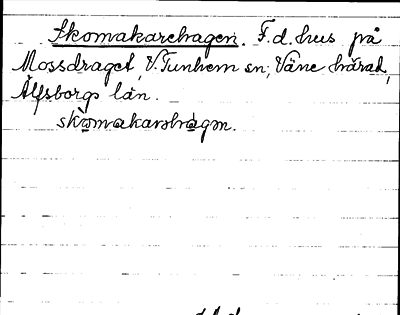 Skomakarehagen. F.d. hus på
Mossdraget, V. Tunhem sn, Väne härad,
Älfsborgs län.
skomakarehagen.